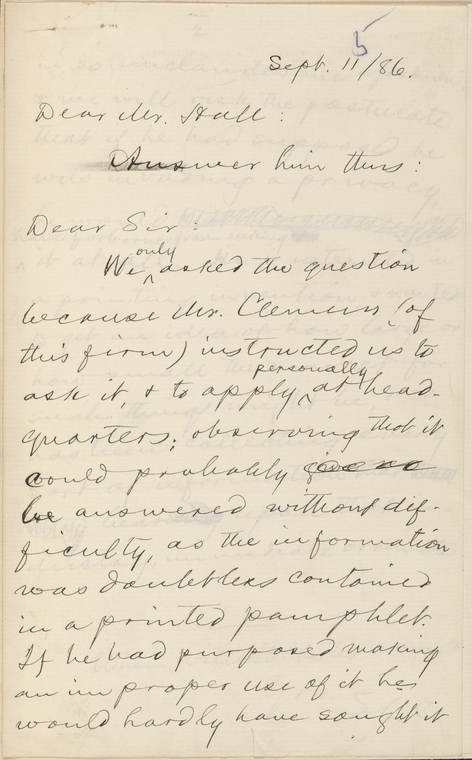 5
Sept. 11/86.
Dear Mr. Hall:
Answer him thus:
Dear Sir:
only
We asked the question
because Mr. Clemens (of
this firm) instructed us to
personally
ask it, & to apply at head-
quarters; observing that it
could probably give no
be answered without dif-
ficulty, as the information
was doubtless contained
in a printed pamphlet.
If he had purposed making
an improper use of it he
would hardly have sought it